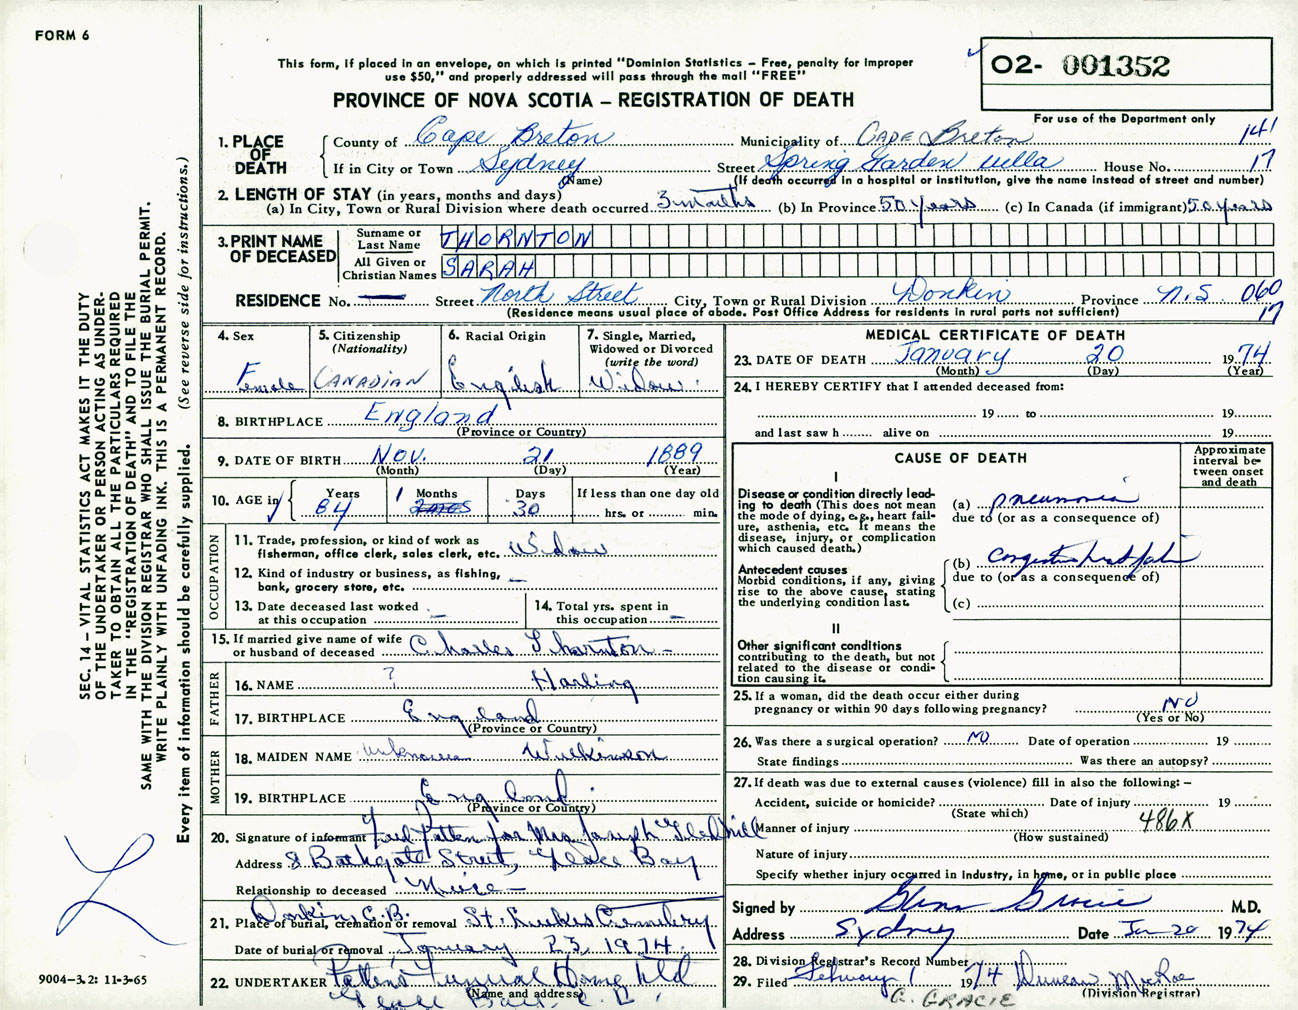 FORM 6
This form, if placed in an envelope, on which is printed "Dominion Statistics – Free, penalty for improper
use $50," and properly addressed will pass through the mail "FREE"
PROVINCE OF NOVA SCOTIA – REGISTRATION OF DEATH
02- 001352
For use of the Department only
1. PLACE OF DEATH
County of Cape Breton Municipality of Cape Breton 141
If in City or Town Sydney Street Spring Garden Villa House No. 17
(Name) (If death occurred in a hospital or institution, give the name instead of street and number)
2. LENGTH OF STAY (in years, months and days)
(a) In City, Town or Rural Division where death occurred 3 months (b) In Province 50 years (c) In Canada (if immigrant) 50 years
3. PRINT NAME OF DECEASED
Surname or Last Name THORNTON
All Given or Christian Names SARAH
RESIDENCE No. — Street North Street City, Town or Rural Division Donkin Province N.S 060
(Residence means usual place of abode. Post Office Address for residents in rural parts not sufficient) 17
4. Sex Female
5. Citizenship (Nationality) CANADIAN
6. Racial Origin English
7. Single, Married, Widowed or Divorced (write the word) Widow
8. BIRTHPLACE England
(Province or Country)
9. DATE OF BIRTH Nov. 21 1889
(Month) (Day) (Year)
10. AGE in Years 84 Months 1 Days 30 If less than one day old hrs. or min.
OCCUPATION
11. Trade, profession, or kind of work as fisherman, office clerk, sales clerk, etc. Widow
12. Kind of industry or business, as fishing, bank, grocery store, etc. —
13. Date deceased last worked at this occupation —
14. Total yrs. spent in this occupation —
15. If married give name of wife or husband of deceased Charles Thornton –
FATHER
16. NAME ? Harling
17. BIRTHPLACE England
(Province or Country)
MOTHER
18. MAIDEN NAME unknown Wilkinson
19. BIRTHPLACE England
(Province or Country)
20. Signature of informant Patten for Mrs Joseph
Address 8 Bathgate Street, Glace Bay
Relationship to deceased Niece –
21. Place of burial, cremation or removal Donkin C.B. St. Lukes Cemetery
Date of burial or removal January 23, 1974.
22. UNDERTAKER Pattens Funeral Home Ltd
(Name and address)
Glace Bay, C.B.
MEDICAL CERTIFICATE OF DEATH
23. DATE OF DEATH January 20 1974
(Month) (Day) (Year)
24. I HEREBY CERTIFY that I attended deceased from:
19 to 19
and last saw h alive on 19
CAUSE OF DEATH
Approximate interval between onset and death
I
Disease or condition directly leading to death (This does not mean the mode of dying, e.g., heart failure, asthenia, etc. It means the disease, injury, or complication which caused death.)
(a) pneumonia
due to (or as a consequence of)
Antecedent causes
Morbid conditions, if any, giving rise to the above cause, stating the underlying condition last.
(b) congestive heart failure
due to (or as a consequence of)
(c)
II
Other significant conditions
contributing to the death, but not related to the disease or condition causing it.
25. If a woman, did the death occur either during pregnancy or within 90 days following pregnancy? NO
(Yes or No)
26. Was there a surgical operation? NO Date of operation 19
State findings Was there an autopsy?
27. If death was due to external causes (violence) fill in also the following: –
Accident, suicide or homicide? Date of injury 19
(State which)
Manner of injury 486X
(How sustained)
Nature of injury
Specify whether injury occurred in Industry, in home, or in public place
Signed by Glen Gracie M.D.
Address Sydney Date Jan 20 1974
28. Division Registrar's Record Number
29. Filed February 1 1974 Duncan MacRae
(Division Registrar)
G. GRACIE
SEC. 14 – VITAL STATISTICS ACT MAKES IT THE DUTY
OF THE UNDERTAKER OR PERSON ACTING AS UNDER-
TAKER TO OBTAIN ALL THE PARTICULARS REQUIRED
IN THE "REGISTRATION OF DEATH" AND TO FILE THE
SAME WITH THE DIVISION REGISTRAR WHO SHALL ISSUE THE BURIAL PERMIT.
WRITE PLAINLY WITH UNFADING INK. THIS IS A PERMANENT RECORD.
Every item of information should be carefully supplied. (See reverse side for instructions.)
9004-3.2: 11-3-65